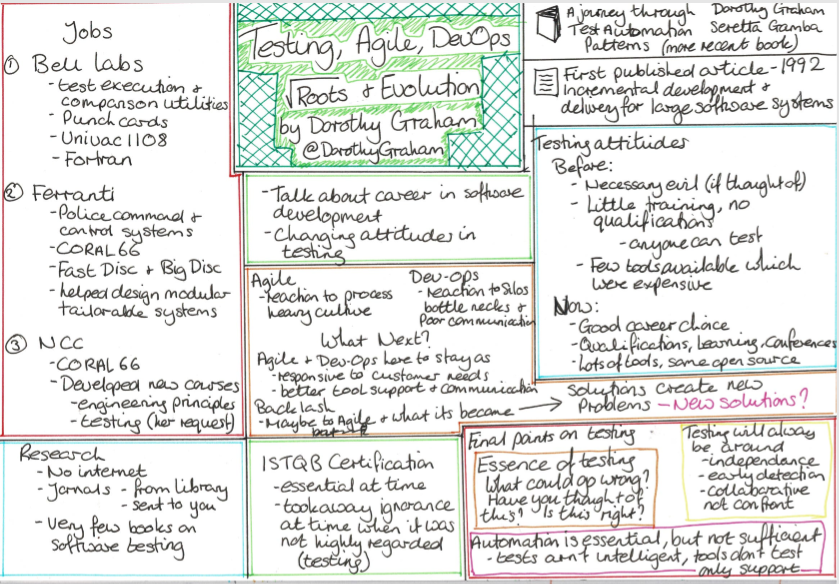 Testing, Agile, DevOps
Roots & Evolution
by Dorothy Graham
@DorothyGraham
Jobs
① Bell labs
- test execution &
comparison utilities
- Punch cards
- Univac 1108
- Fortran
② Ferranti
- Police command &
control systems
- CORAL66
- Fast Disc & Big Disc
- helped design modular
tailorable systems
③ NCC
- CORAL 66
- Developed new courses
- engineering principles
- testing (her request)
Research
- No internet
- Jornals - from Library
- sent to you
- Very few books on
software testing
- Talk about career in software
development
- Changing attitudes in
testing
Agile
- reaction to process
heavy culture
Dev-Ops
- reaction to Silos
bottle necks &
Poor communication
What Next?
Agile & Dev-Ops here to stay as
- responsive to customer needs
- better tool support & communication
Back lash
- Maybe to Agile & what its became
Solutions create new
Problems - New solutions?
ISTQB Certification
- essential at time
- took away ignorance
at time when it was
not highly regarded
(testing)
A journey through
Test Automation
Patterns (more recent book)
Dorothy Graham
Seretta Gamba
First published article - 1992
Incremental development &
delivery for large software systems
Testing attitudes
Before:
- Necessary evil (if thought of)
- Little training, no
qualifications
- anyone can test
- Few tools available which
were expensive
Now:
- Good career choice
- Qualifications, Learning, Conferences
- Lots of tools, some open source
Final points on testing
Essence of testing
What could go wrong?
Have you thought of
this? Is this right?
Testing will alway
be around
- independance
- early detection
- collaborative
not confront
Automation is essential, but not sufficient
- tests arn't intelligent, tools don't test
only support